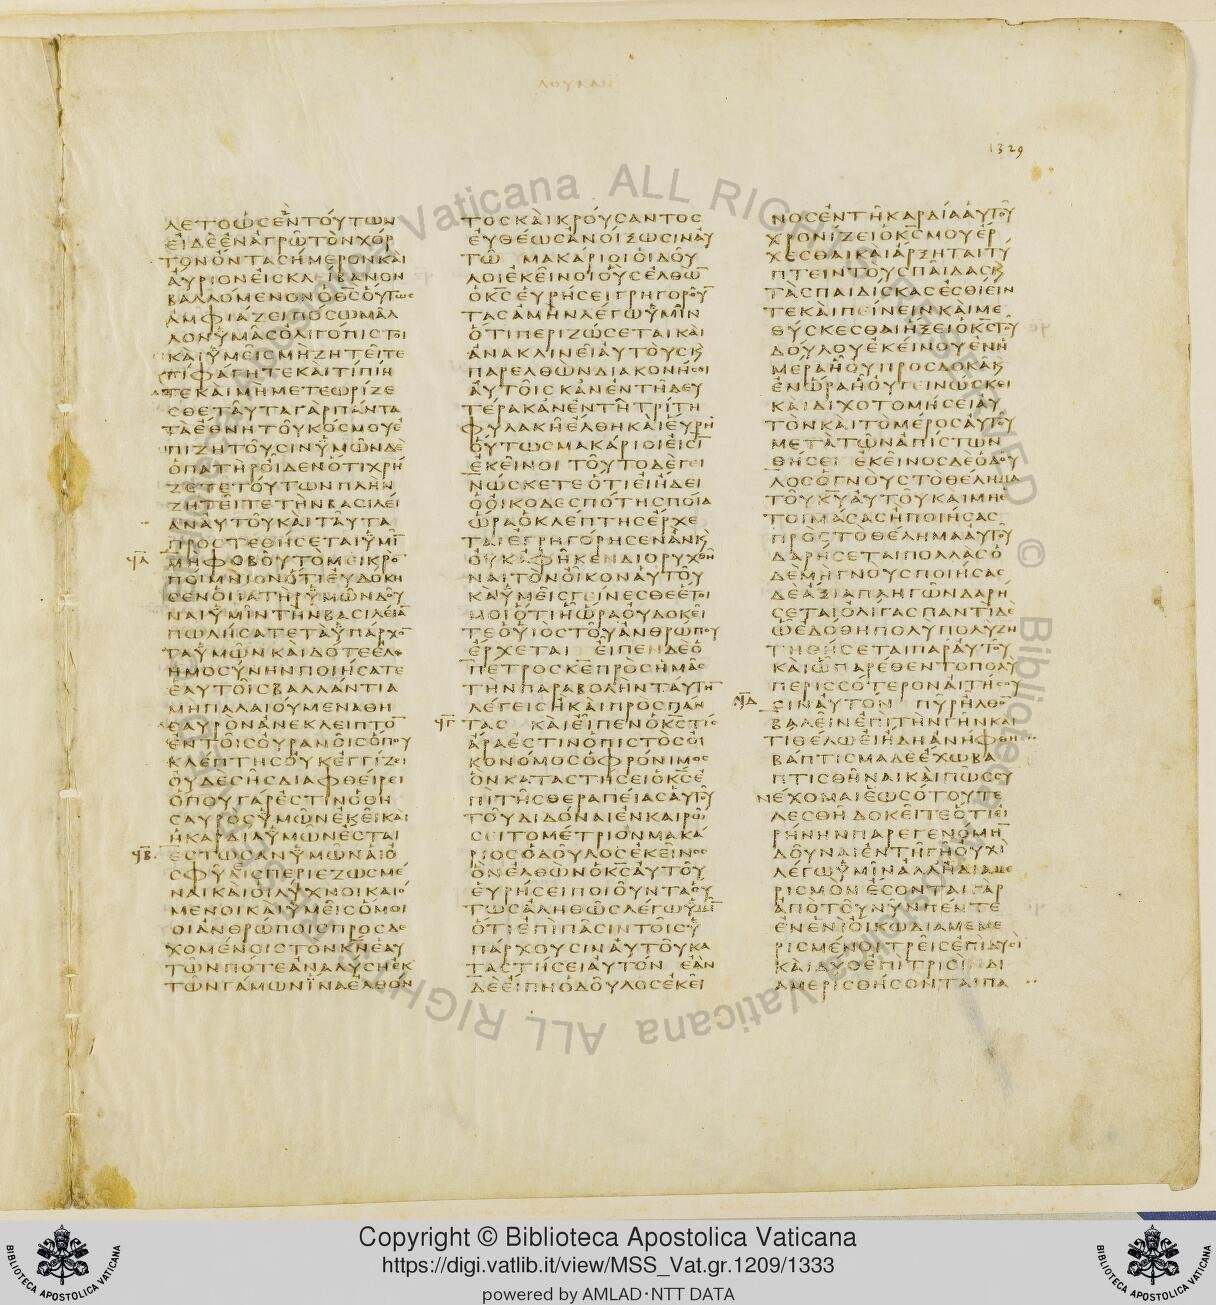 ΛΟΥΚΑΝ
1329
ΛΕΤΟΩΣΕΝΤΟΥΤΩΝ
ΕΙΔΕΕΝΑΓΡΩΤΟΝΧΟΡ
ΤΟΝΟΝΤΑΣΗΜΕΡΟΝΚΑΙ
ΑΥΡΙΟΝΕΙΣΚΛΙΒΑΝΟΝ
ΒΑΛΛΟΜΕΝΟΝΟΘΣΟΥΤΩΣ
ΑΜΦΙΑΖΕΙΠΟΣΩΜΑΛ
ΛΟΝΥΜΑΣΟΛΙΓΟΠΙΣΤΟΙ
ΚΑΙΥΜΕΙΣΜΗΖΗΤΕΙΤΕ
ΤΙΦΑΓΗΤΕΚΑΙΤΙΠΙΗ
ΤΕΚΑΙΜΗΜΕΤΕΩΡΙΖΕ
ΣΘΕΤΑΥΤΑΓΑΡΠΑΝΤΑ
ΤΑΕΘΝΗΤΟΥΚΟΣΜΟΥΕ
ΠΙΖΗΤΟΥΣΙΝΥΜΩΝΔΕ
ΟΠΑΤΗΡΟΙΔΕΝΟΤΙΧΡΗ
ΖΕΤΕΤΟΥΤΩΝΠΛΗΝ
ΖΗΤΕΙΤΕΤΗΝΒΑΣΙΛΕΙ
ΑΝΑΥΤΟΥΚΑΙΤΑΥΤΑ
ΠΡΟΣΤΕΘΗΣΕΤΑΙΥΜΙ̅
ϤΑ ΜΗΦΟΒΟΥΤΟΜΕΙΚΡΟ̅
ΠΟΙΜΝΙΟΝΟΤΙΕΥΔΟΚΗ
ΣΕΝΟΠΑΤΗΡΥΜΩΝΔΟΥ
ΝΑΙΥΜΙΝΤΗΝΒΑΣΙΛΕΙΑ̅
ΠΩΛΗΣΑΤΕΤΑΥΠΑΡΧΟ̅
ΤΑΥΜΩΝΚΑΙΔΟΤΕΕΛΕ
ΗΜΟΣΥΝΗΝΠΟΙΗΣΑΤΕ
ΕΑΥΤΟΙΣΒΑΛΛΑΝΤΙΑ
ΜΗΠΑΛΑΙΟΥΜΕΝΑΘΗ
ΣΑΥΡΟΝΑΝΕΚΛΕΙΠΤΟ̅
ΕΝΤΟΙΣΟΥΡΑΝΟΙΣΟΠΟΥ
ΚΛΕΠΤΗΣΟΥΚΕΓΓΙΖΕΙ
ΟΥΔΕΣΗΣΔΙΑΦΘΕΙΡΕΙ
ΟΠΟΥΓΑΡΕΣΤΙΝΟΘΗ
ΣΑΥΡΟΣΥΜΩΝΕΚΕΙΚΑΙ
ΗΚΑΡΔΙΑΥΜΩΝΕΣΤΑΙ
ϤΒ ΕΣΤΩΣΑΝΥΜΩΝΑΙΟ
ΣΦΥΕΣΠΕΡΙΕΖΩΣΜΕ
ΝΑΙΚΑΙΟΙΛΥΧΝΟΙΚΑΙΟ
ΜΕΝΟΙΚΑΙΥΜΕΙΣΟΜΟΙ
ΟΙΑΝΘΡΩΠΟΙΣΠΡΟΣΔΕ
ΧΟΜΕΝΟΙΣΤΟΝΚΝΕΑΥ
ΤΩΝΠΟΤΕΑΝΑΛΥΣΗΕΚ
ΤΩΝΓΑΜΩΝΙΝΑΕΛΘΟΝ
ΤΟΣΚΑΙΚΡΟΥΣΑΝΤΟΣ
ΕΥΘΕΩΣΑΝΟΙΞΩΣΙΝΑΥ
ΤΩ ΜΑΚΑΡΙΟΙΟΙΔΟΥ
ΛΟΙΕΚΕΙΝΟΙΟΥΣΕΛΘΩ̅
ΟΚΣΕΥΡΗΣΕΙΓΡΗΓΟΡΟΥ̅
ΤΑΣΑΜΗΝΛΕΓΩΥΜΙΝ
ΟΤΙΠΕΡΙΖΩΣΕΤΑΙΚΑΙ
ΑΝΑΚΛΙΝΕΙΑΥΤΟΥΣΚ
ΠΑΡΕΛΘΩΝΔΙΑΚΟΝΗΣΕΙ
ΑΥΤΟΙΣΚΑΝΕΝΤΗΔΕΥ
ΤΕΡΑΚΑΝΕΝΤΗΤΡΙΤΗ
ΦΥΛΑΚΗΕΛΘΗΚΑΙΕΥΡΗ
ΟΥΤΩΣΜΑΚΑΡΙΟΙΕΙΣΙ̅
ΕΚΕΙΝΟΙ ΤΟΥΤΟΔΕΓΕΙ
ΝΩΣΚΕΤΕΟΤΙΕΙΗΔΕΙ
ΟΟΙΚΟΔΕΣΠΟΤΗΣΠΟΙΑ
ΩΡΑΟΚΛΕΠΤΗΣΕΡΧΕ
ΤΑΙΕΓΡΗΓΟΡΗΣΕΝΑΝΚ
ΟΥΚΑΦΗΚΕΝΔΙΟΡΥΧΘΗ
ΝΑΙΤΟΝΟΙΚΟΝΑΥΤΟΥ
ΚΑΙΥΜΕΙΣΓΕΙΝΕΣΘΕΕΤΟΙ
ΜΟΙΟΤΙΗΩΡΑΟΥΔΟΚΕΙ
ΤΕΟΥΙΟΣΤΟΥΑΝΘΡΩΠΟΥ
ΕΡΧΕΤΑΙ ΕΙΠΕΝΔΕΟ
ΠΕΤΡΟΣΚΕΠΡΟΣΗΜΑΣ
ΤΗΝΠΑΡΑΒΟΛΗΝΤΑΥΤΗ̅
ΛΕΓΕΙΣΗΚΑΙΠΡΟΣΠΑΝ
ϤΓ ΤΑΣ ΚΑΙΕΙΠΕΝΟΚΣΤΙΣ
ΑΡΑΕΣΤΙΝΟΠΙΣΤΟΣΟΙ
ΚΟΝΟΜΟΣΟΦΡΟΝΙΜΟΣ
ΟΝΚΑΤΑΣΤΗΣΕΙΟΚΣΕ
ΠΙΤΗΣΘΕΡΑΠΕΙΑΣΑΥΤΟΥ
ΤΟΥΔΙΔΟΝΑΙΕΝΚΑΙΡΩ
ΣΕΙΤΟΜΕΤΡΙΟΝΜΑΚΑ
ΡΙΟΣΟΔΟΥΛΟΣΕΚΕΙΝΟΣ
ΟΝΕΛΘΩΝΟΚΣΑΥΤΟΥ
ΕΥΡΗΣΕΙΠΟΙΟΥΝΤΑΟΥ
ΤΩΣΑΛΗΘΩΣΛΕΓΩΥΜΙ̅
ΟΤΙΕΠΙΠΑΣΙΝΤΟΙΣΥ
ΠΑΡΧΟΥΣΙΝΑΥΤΟΥΚΑ
ΤΑΣΤΗΣΕΙΑΥΤΟΝ ΕΑΝ
ΔΕΕΙΠΗΟΔΟΥΛΟΣΕΚΕΙ
ΝΟΣΕΝΤΗΚΑΡΔΙΑΑΥΤΟΥ
ΧΡΟΝΙΖΕΙΟΚΣΜΟΥΕΡ
ΧΕΣΘΑΙΚΑΙΑΡΞΗΤΑΙΤΥ
ΠΤΕΙΝΤΟΥΣΠΑΙΔΑΣΚ
ΤΑΣΠΑΙΔΙΣΚΑΣΕΣΘΙΕΙΝ
ΤΕΚΑΙΠΕΙΝΕΙΝΚΑΙΜΕ
ΘΥΣΚΕΣΘΑΙΗΞΕΙΟΚΣΤΟΥ
ΔΟΥΛΟΥΕΚΕΙΝΟΥΕΝΗ
ΜΕΡΑΗΟΥΠΡΟΣΔΟΚΑΚ
ΕΝΩΡΑΗΟΥΓΕΙΝΩΣΚΕΙ
ΚΑΙΔΙΧΟΤΟΜΗΣΕΙΑΥ
ΤΟΝΚΑΙΤΟΜΕΡΟΣΑΥΤΟΥ
ΜΕΤΑΤΩΝΑΠΙΣΤΩΝ
ΘΗΣΕΙ ΕΚΕΙΝΟΣΔΕΟΔΟΥ
ΛΟΣΟΓΝΟΥΣΤΟΘΕΛΗΜΑ
ΤΟΥΚΥΑΥΤΟΥΚΑΙΜΗΕ
ΤΟΙΜΑΣΑΣΗΠΟΙΗΣΑΣ
ΠΡΟΣΤΟΘΕΛΗΜΑΑΥΤΟΥ
ΔΑΡΗΣΕΤΑΙΠΟΛΛΑΣΟ
ΔΕΜΗΓΝΟΥΣΠΟΙΗΣΑΣ
ΔΕΑΞΙΑΠΛΗΓΩΝΔΑΡΗ
ΣΕΤΑΙΟΛΙΓΑΣΠΑΝΤΙΔΕ
ΩΕΔΟΘΗΠΟΛΥΠΟΛΥΖΗ
ΤΗΘΗΣΕΤΑΙΠΑΡΑΥΤΟΥ
ΚΑΙΩΠΑΡΕΘΕΝΤΟΠΟΛΥ
ΠΕΡΙΣΣΟΤΕΡΟΝΑΙΤΗΣΟΥ
ϤΔ ΣΙΝΑΥΤΟΝ ΠΥΡΗΛΘΟ̅
ΒΑΛΕΙΝΕΠΙΤΗΝΓΗΝΚΑΙ
ΤΙΘΕΛΩΕΙΗΔΗΑΝΗΦΘΗ
ΒΑΠΤΙΣΜΑΔΕΕΧΩΒΑ
ΠΤΙΣΘΗΝΑΙΚΑΙΠΩΣΣΥ
ΝΕΧΟΜΑΙΕΩΣΟΤΟΥΤΕ
ΛΕΣΘΗΔΟΚΕΙΤΕΟΤΙΕΙ
ΡΗΝΗΝΠΑΡΕΓΕΝΟΜΗ̅
ΔΟΥΝΑΙΕΝΤΗΓΗΟΥΧΙ
ΛΕΓΩΥΜΙΝΑΛΛΗΔΙΑΜΕ
ΡΙΣΜΟΝΕΣΟΝΤΑΙΓΑΡ
ΑΠΟΤΟΥΝΥΝΠΕΝΤΕ
ΕΝΕΝΙΟΙΚΩΔΙΑΜΕΜΕ
ΡΙΣΜΕΝΟΙΤΡΕΙΣΕΠΙΔΥΣΙ
ΚΑΙΔΥΟΕΠΙΤΡΙΣΙΝΔΙ
ΑΜΕΡΙΣΘΗΣΟΝΤΑΙΠΑ
Vaticana ALL RIGHTS RESERVED © Biblioteca Apostolica Vaticana ALL RIGHTS
Copyright © Biblioteca Apostolica Vaticana
https://digi.vatlib.it/view/MSS_Vat.gr.1209/1333
powered by AMLAD·NTT DATA
BIBLIOTECA APOSTOLICA VATICANA
BIBLIOTECA APOSTOLICA VATICANA